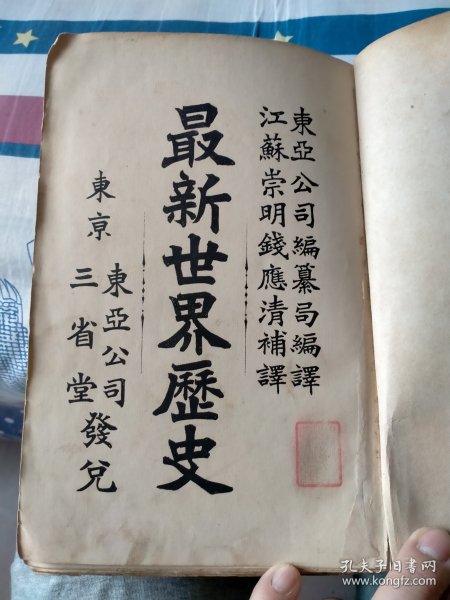 東亞公司編纂局編譯
江蘇崇明錢應清補譯
最新世界歷史
東京
東亞公司
三省堂
發兌
孔夫子旧书网
www.kongfz.com